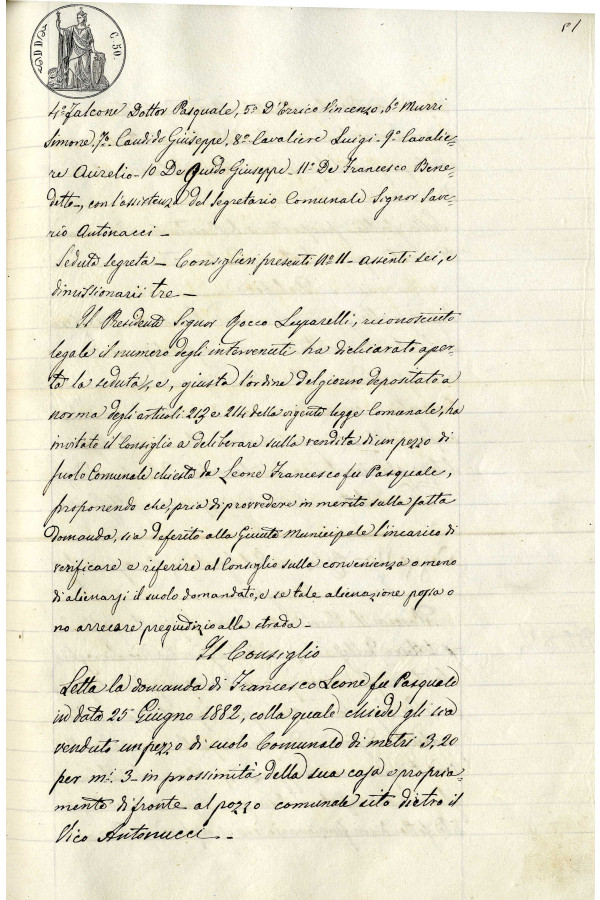 C. 50.
51
4° Falcone Dottor Pasquale, 5° D'Errico Vincenzo, 6° Murri
Simone, 7° Candido Giuseppe, 8° Cavaliere Luigi - 9° Cavalie-
re Aurelio - 10 De Guido Giuseppe - 11° De Francesco Bene-
detto, con l'assistenza del Segretario Comunale Signor Save-
rio Antonacci -
Seduta segreta - Consiglieri presenti N° 11 - assenti sei, e
dimissionarii tre -
Il Presidente Signor Rocco Leparelli, riconosciuto
legale il numero degli intervenuti ha dichiarato aper-
ta la seduta, e, giusta l'ordine del giorno depositato a
norma degli articoli 213 e 214 della vigente legge Comunale, ha
invitato il Consiglio a deliberare sulla vendita di un pezzo di
suolo Comunale chiesta da Leone Francesco fu Pasquale,
proponendo che, pria di provvedere in merito sulla fatta
domanda, sia deferito alla Giunta Municipale l'incarico di
verificare e riferire al Consiglio sulla convenienza o meno
di alienarsi il suolo domandato, e se tale alienazione possa o
no arrecare pregiudizio alla strada -
Il Consiglio
Letta la domanda di Francesco Leone fu Pasquale
in data 25 Giugno 1882, colla quale chiede gli sia
venduto un pezzo di suolo Comunale di metri 3,20
per m.i 3. in prossimità della sua casa e propria-
mente di fronte al pozzo comunale sito dietro il
Vico Antonucci -